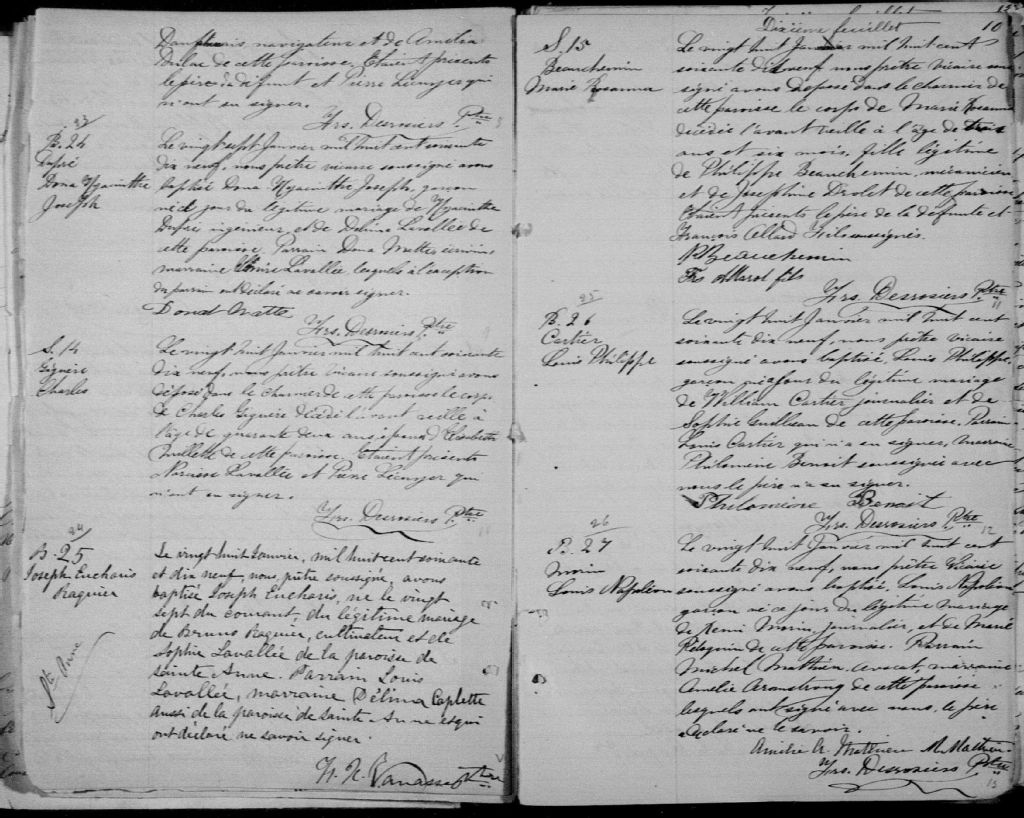 navigateur et de Amelia
de cette paroisse. Etaient présents
le père du défunt et Pierre Lécuyer qui
n'ont su signer.
Frs. Desrosiers, Ptre
23
B. 24
Dupré
Dona Hyacinthe
Joseph
Le vingt sept Janvier mil huit cent soixante
dix neuf, nous prêtre vicaire soussigné avons
baptisé Dona Hyacinthe Joseph, garçon
né ce jour du légitime mariage de Hyacinthe
Dupré ingénieur, et de Lavallée de
cette paroisse. Parrain Dona Matte écrivain
marraine Lavallée lesquels à l'exception
du parrain ont déclaré ne savoir signer.
Donat Matte
Frs. Desrosiers, Ptre
S. 14
Gignère
Charles
Le vingt huit Janvier mil huit cent soixante
dix neuf, nous prêtre vicaire soussigné avons
déposé dans le charnier de cette paroisse le corps
de Charles Gignère décédé l'avant veille à
l'âge de quarante deux ans époux d'
de cette paroisse. Etaient présents
Narcisse Lavallée et Pierre Lécuyer qui
n'ont su signer.
Frs. Desrosiers, Ptre
24
B. 25
Joseph Eucharis
Raguier
Ste Anne
Le vingt huit Janvier, mil huit cent soixante
et dix neuf, nous, prêtre soussigné, avons
baptisé Joseph Eucharis, né le vingt
sept du courant, du légitime mariage
de Bruno Raguier, cultivateur et de
Sophie Lavallée de la paroisse de
Sainte Anne. Parrain Louis
Lavallée, marraine Délima Caplette
aussi de la paroisse de Sainte Anne esqui
ont déclaré ne savoir signer.
H. N. Vanasse Ptre
Dixième feuillet
10
S. 15
Beauchemin
Marie Rosanna
Le vingt huit Janvier mil huit cent
soixante dix neuf nous prêtre vicaire sous
signé avons déposé dans le charnier de
cette paroisse le corps de Marie Rosanna
décédée l'avant veille à l'âge de trois
ans et six mois, fille légitime
de Philippe Beauchemin, mécanicien
et de Josephine Drolet de cette paroisse
Etaient présents le père de la défunte et
François Allard fils soussignés.
P. Beauchemin
Frs Allard fils
Frs. Desrosiers, Ptre
11
25
B. 26
Cartier
Louis Philippe
Le vingt huit Janvier mil huit cent
soixante dix neuf, nous prêtre vicaire
soussigné avons baptisé, Louis Philippe
garçon né ce jour du légitime mariage
de William Cartier journalier et de
Sophie de cette paroisse. Parrain
Louis Cartier qui n'a su signer, marraine
Philomène Benoit soussignée avec
nous le père n'a su signer.
Philomène Benoit
Frs. Desrosiers, Ptre
12
26
B. 27
Morin
Louis Napoléon
Le vingt huit Janvier mil huit cent
soixante dix neuf, nous prêtre vicaire
soussigné avons baptisé, Louis Napoléon
garçon né ce jour du légitime mariage
de Remi Morin journalier, et de Marie
Péloquin de cette paroisse. Parrain
Michel Mathieu avocat, marraine
Amélie Armstrong de cette paroisse
lesquels ont signé avec nous, le père
a déclaré ne le savoir.
Amélie A. Mathieu M. Mathieu
Frs. Desrosiers, Ptre
13